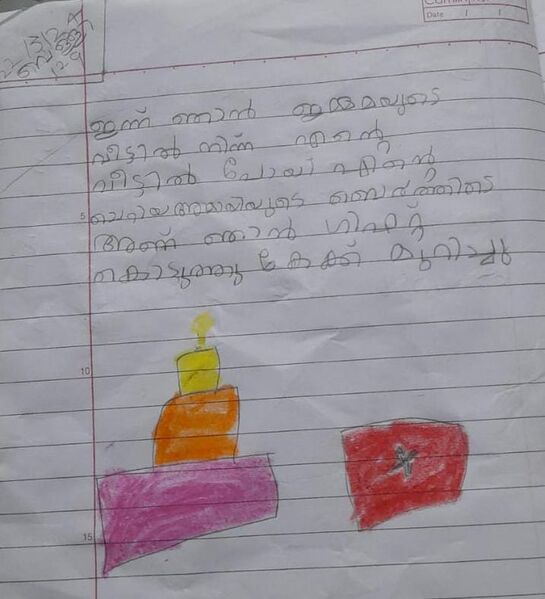 Date / /
ഇന്ന് ഞാൻ ഇമ്മമയുടെ
വീട്ടിൽ നിന്ന് എന്റെ
വീട്ടിൽ പോയി എന്റെ
ചെറിയ അമ്മയിയുടെ ബെർത്തിടെ
അണ് ഞാൻ ഗിഫ്റ്റ്
കൊടുത്തു കേക്ക് മുറിച്ചു
5
10
15